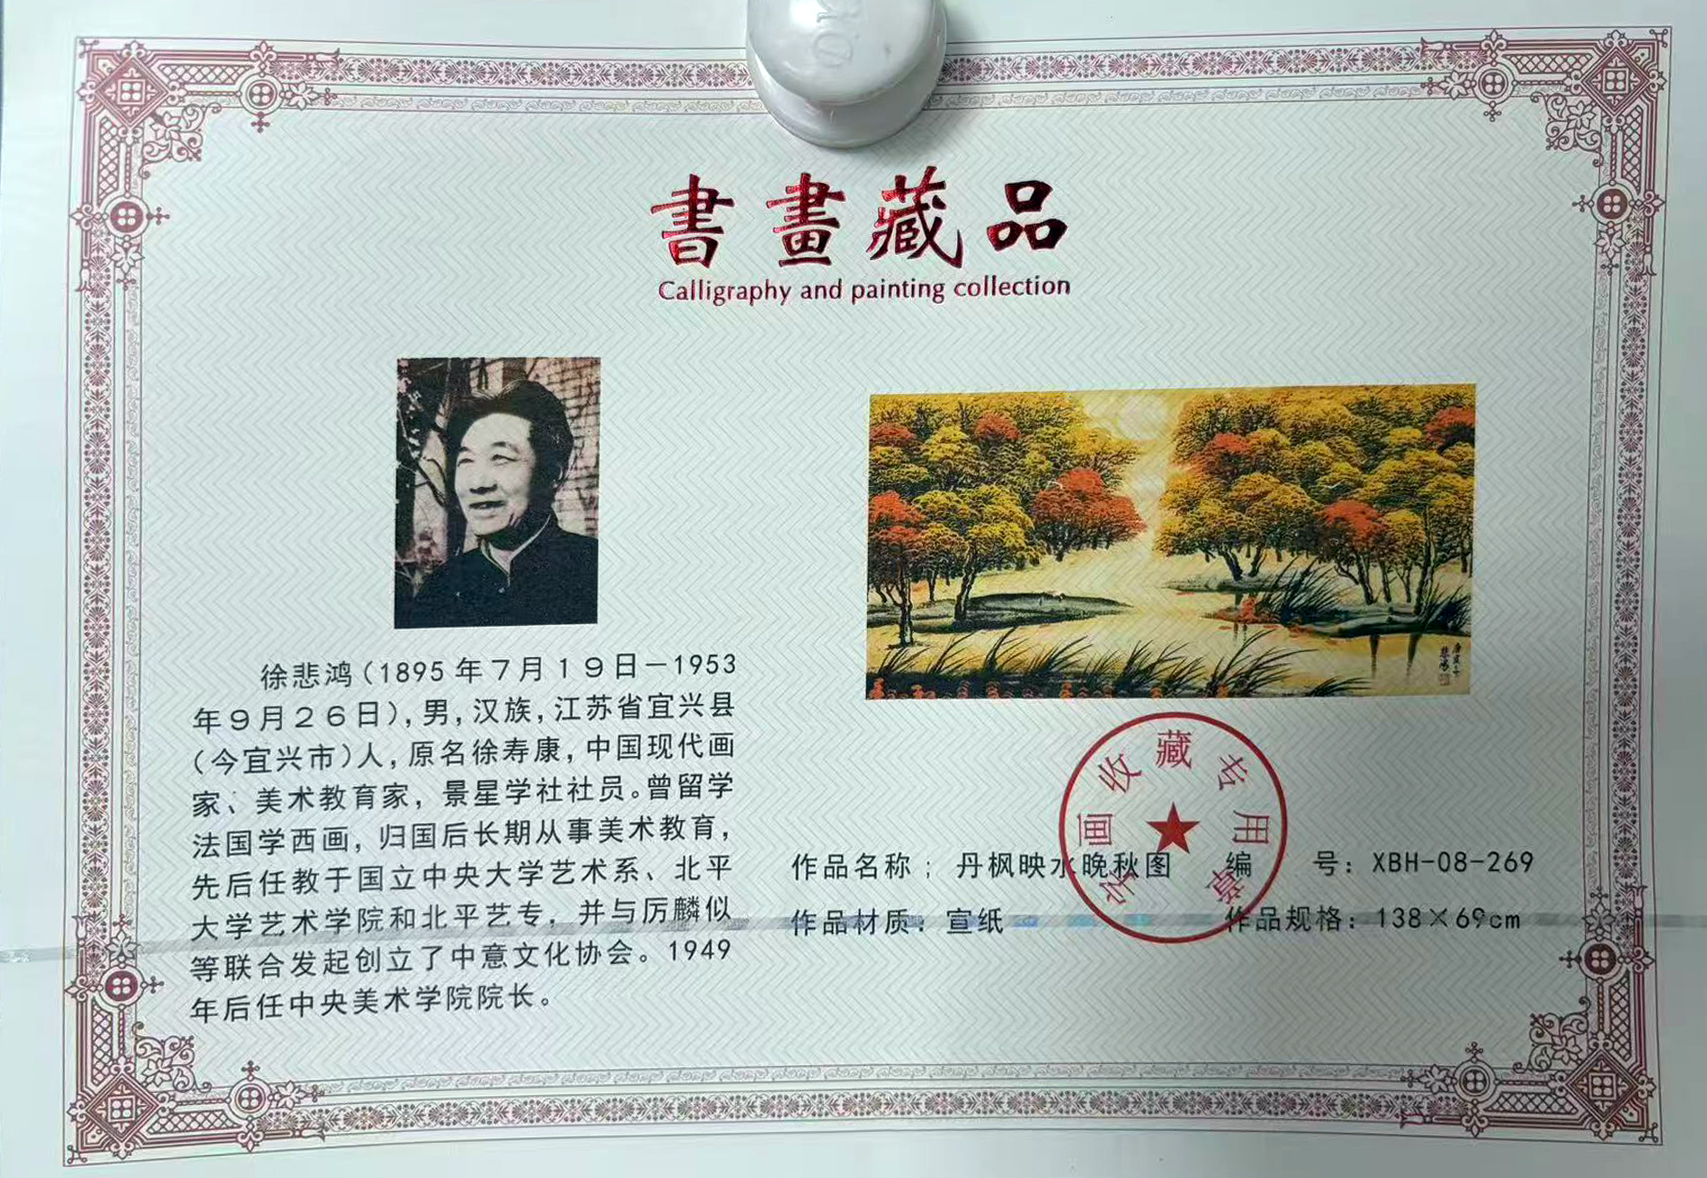 書畫藏品
Calligraphy and painting collection
徐悲鸿(1895年7月19日-1953
年9月26日),男,汉族,江苏省宜兴县
(今宜兴市)人,原名徐寿康,中国现代画
家、美术教育家,景星学社社员。曾留学
法国学西画,归国后长期从事美术教育,
先后任教于国立中央大学艺术系、北平
大学艺术学院和北平艺专,并与厉麟似
等联合发起创立了中意文化协会。1949
年后任中央美术学院院长。
字画收藏专用章
作品名称;丹枫映水晚秋图 编 号:XBH-08-269
作品材质:宣纸 作品规格:138×69cm